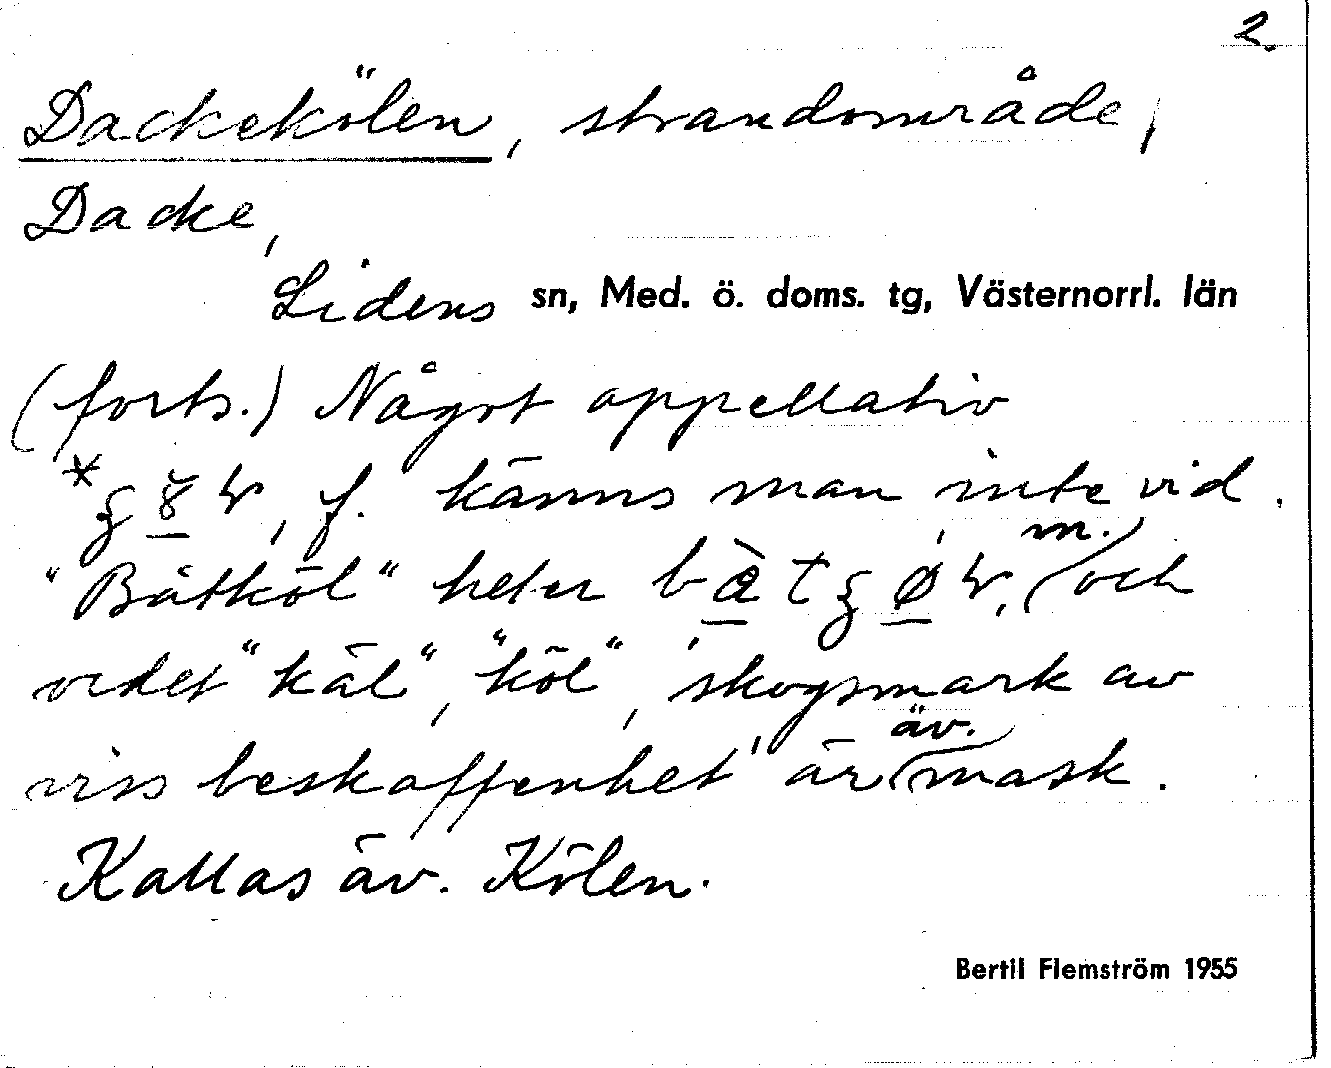 2.
Dackekölen, strandområde,
Dacke,
Lidens sn, Med. ö. doms. tg, Västernorrl. län
(forts.) Något appellativ
f. känns man inte vid.
"Båtköl" heter m. och
ordet "käl", "köl", 'skogsmark av
viss beskaffenhet' är äv. mask.
Kallas äv. Kölen.
Bertil Flemström 1955